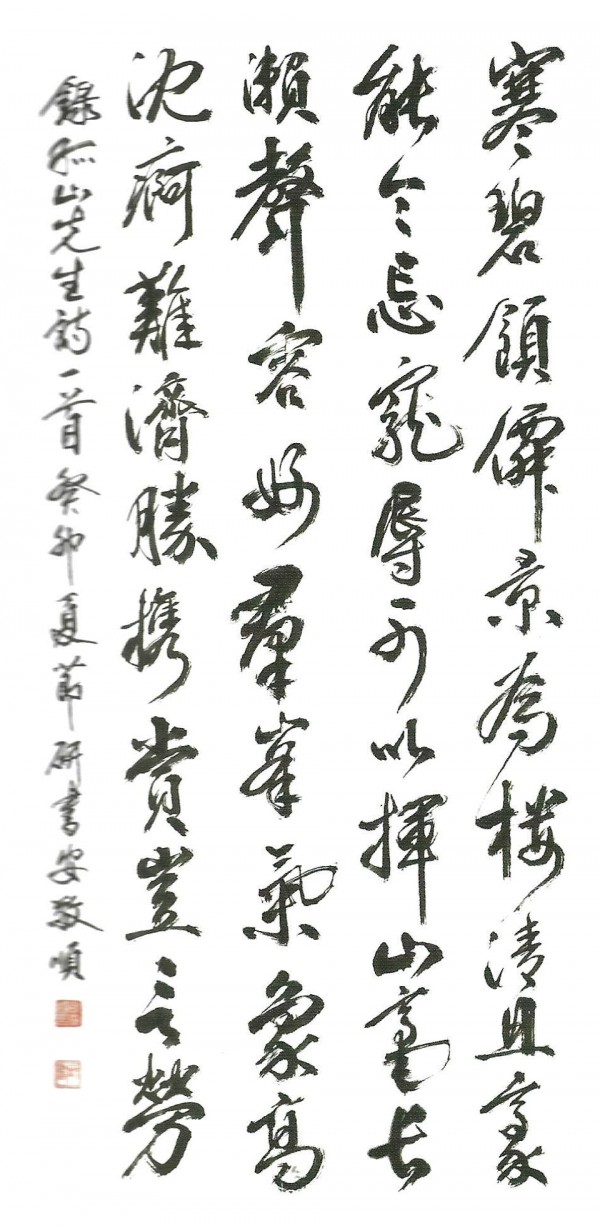 寒碧領僊景為樓清且豪
能令忘寵辱可以揮山毫長
瀨聲容好羣峯氣象高
沈痾難濟勝携賞豈言勞
錄孤山先生詩一首癸卯夏節研書安敬順